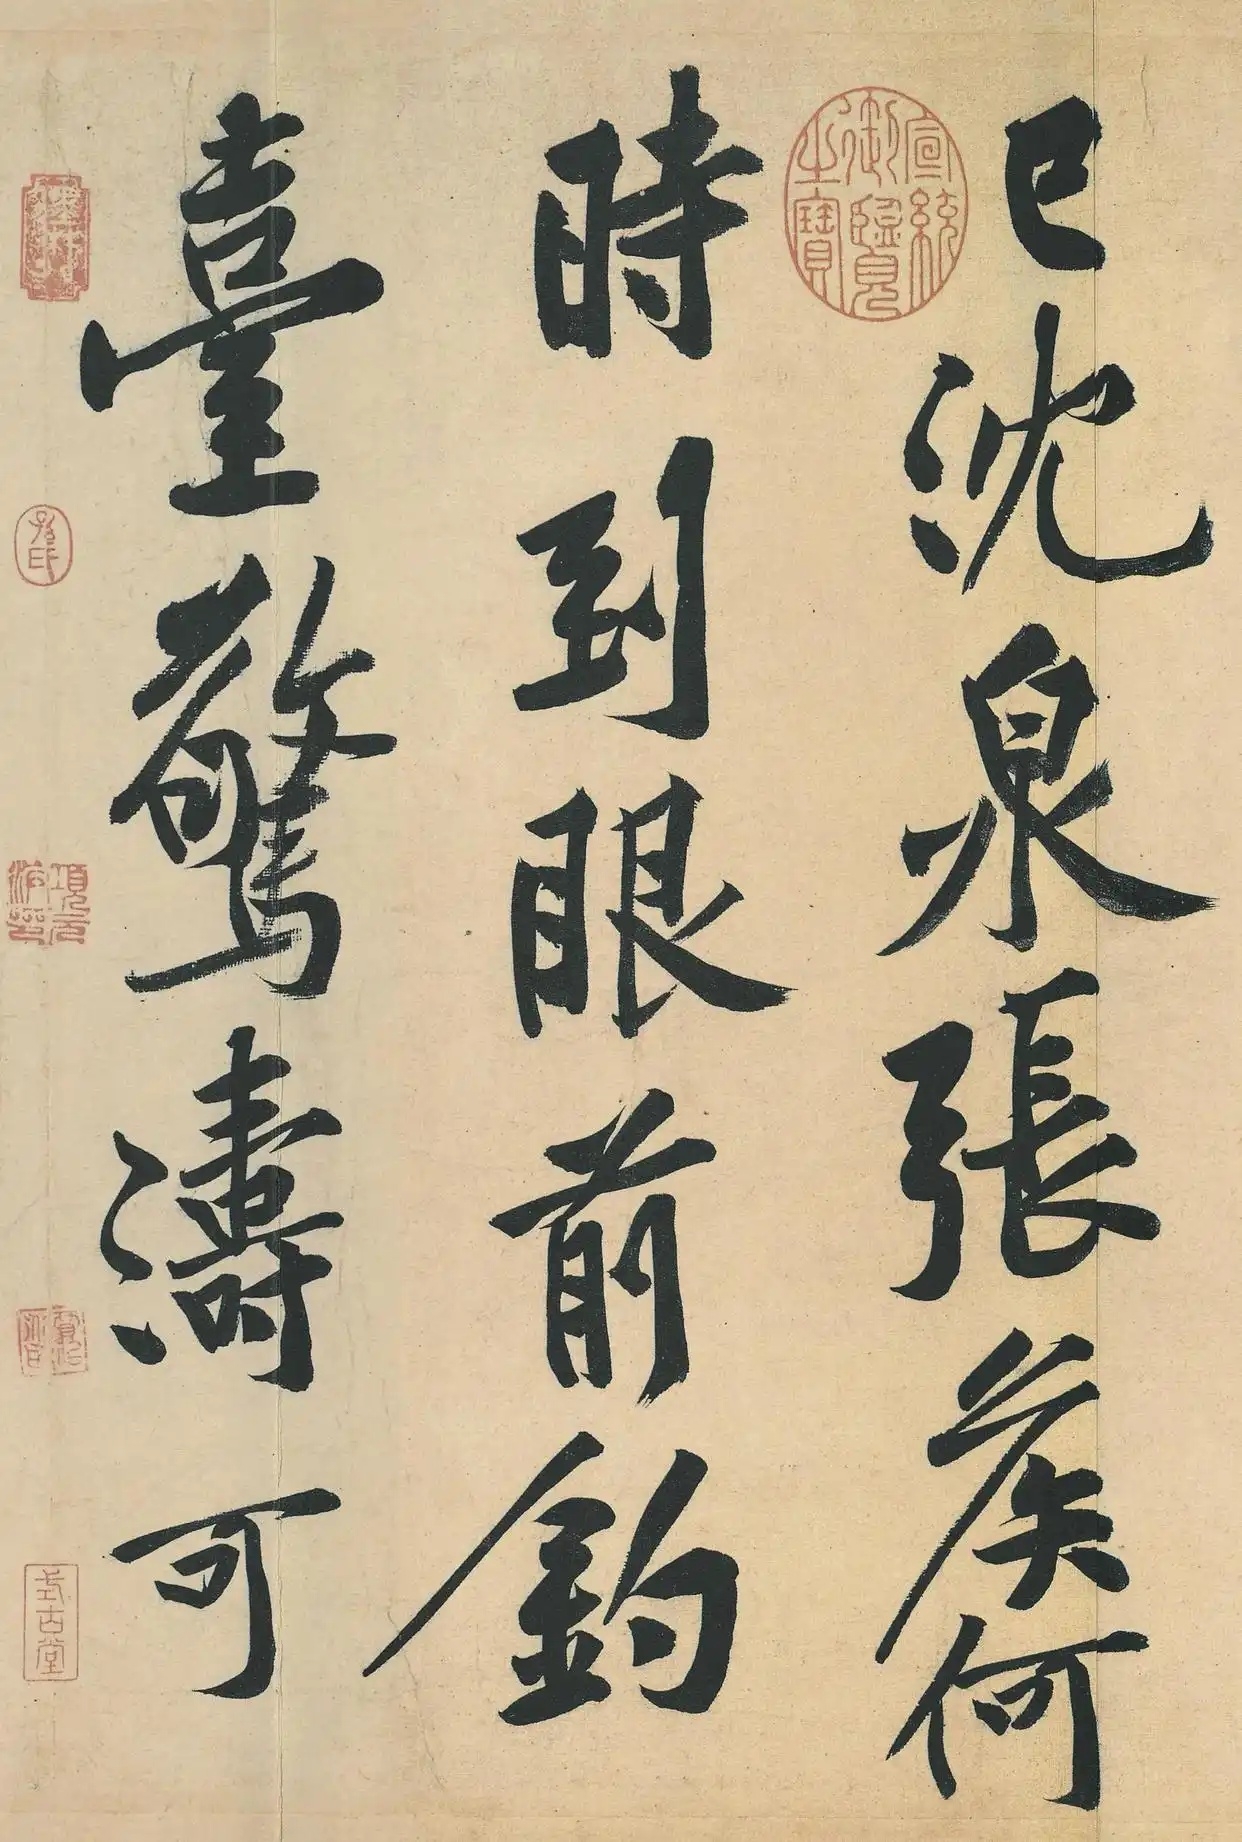 已沈泉張侯何
時到眼前釣
臺驚濤可
宣統御覽之寶
項元汴印
式古堂